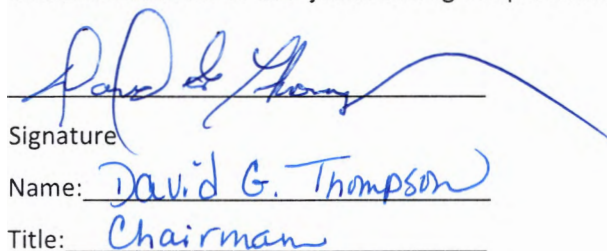 David G. Thom
Signature
Name: David G. Thompson
Title: Chairman